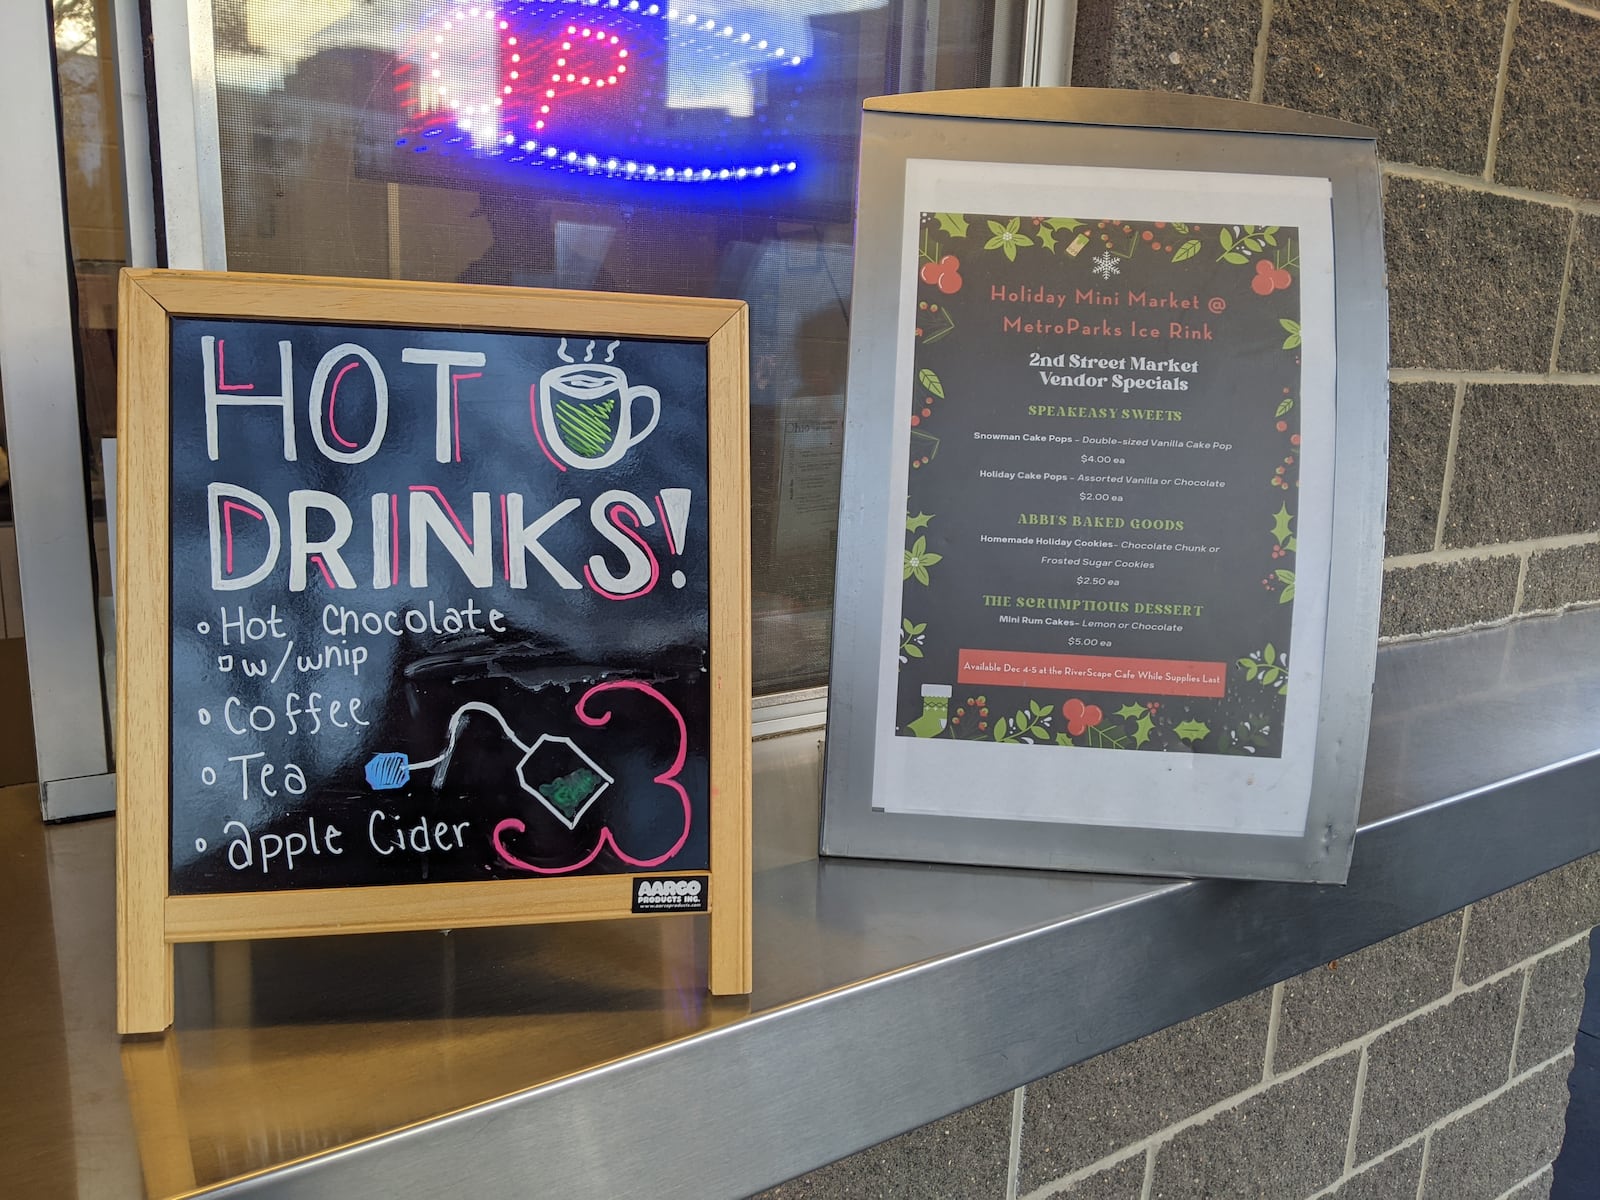 OP
HOT
DRINKS!
Hot Chocolate
w/whip
Coffee
Tea
apple Cider
AARCO
PRODUCTS INC.
www.aarcoproducts.com
Holiday Mini Market @
MetroParks Ice Rink
2nd Street Market
Vendor Specials
SPEAKEASY SWEETS
Snowman Cake Pops - Double-sized Vanilla Cake Pop
$4.00 ea
Holiday Cake Pops - Assorted Vanilla or Chocolate
$2.00 ea
ABBI'S BAKED GOODS
Homemade Holiday Cookies- Chocolate Chunk or
Frosted Sugar Cookies
$2.50 ea
THE SCRUMPTIOUS DESSERT
Mini Rum Cakes- Lemon or Chocolate
$5.00 ea
Available Dec 4-5 at the RiverScape Cafe While Supplies Last